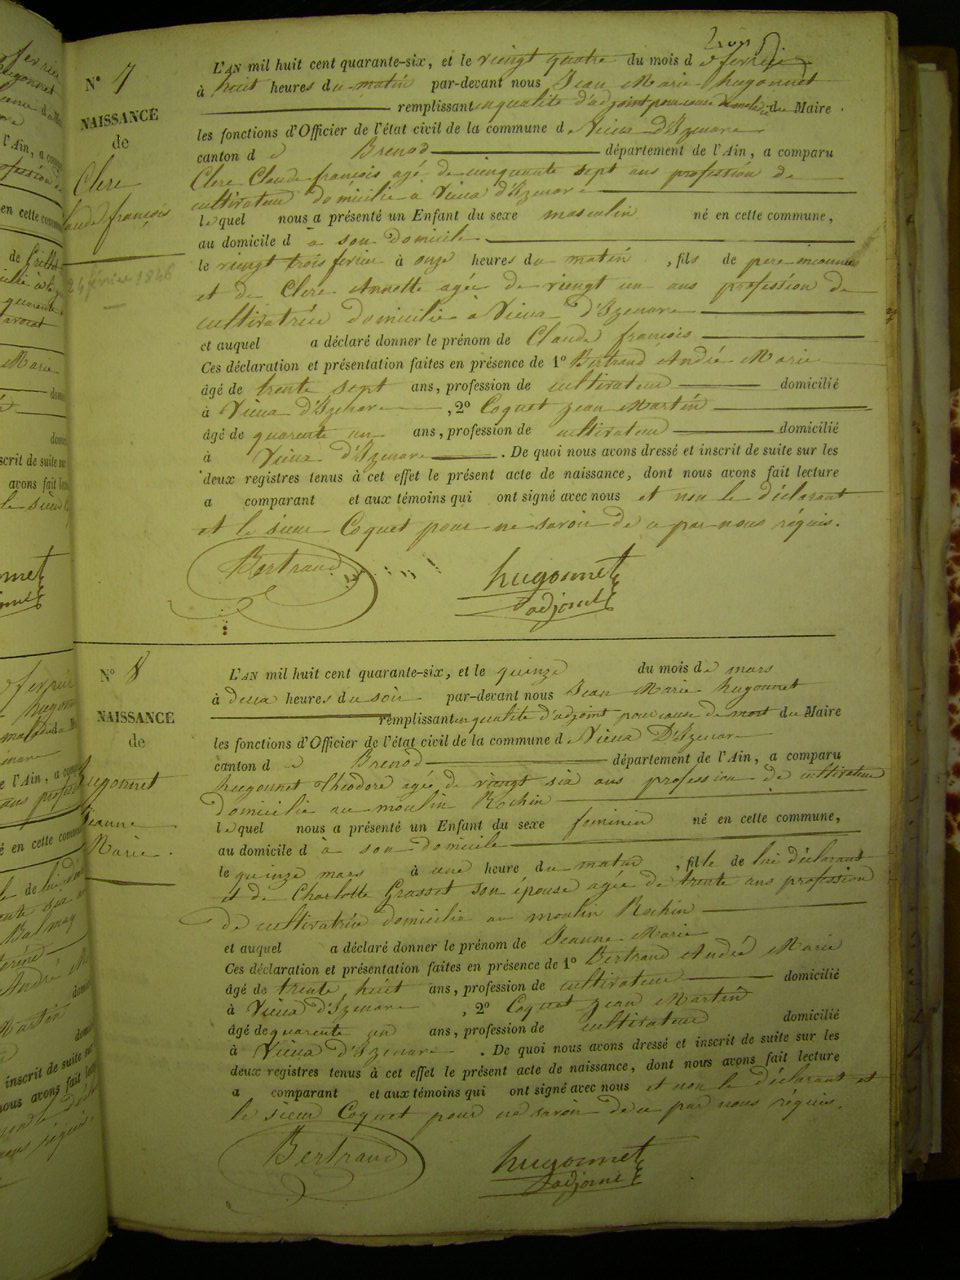 N° 7
NAISSANCE
de
Clerc
Claude françois
24 février 1846
L'AN mil huit cent quarante-six, et le vingt quatre du mois d e février
à huit heures du matin par-devant nous Jean Marie hugonnet
remplissant en qualité d'adjoint pour cause de Maire
les fonctions d'Officier de l'état civil de la commune d Vieux D'Izenave
canton d e Brenod département de l'Ain, a comparu
Clerc Claude françois agé de cinquante sept ans profession de
cultivateur domicilié à Vieux d'Izenave
le quel nous a présenté un Enfant du sexe masculin né en cette commune,
au domicile d a son domicile
le vingt trois fevrier à onze heures du matin , fils de pere inconnu
et de Clerc Annette agée de vingt un ans profession de
cultivatrice domicilié à Vieux d'Izenave
et auquel a déclaré donner le prénom de Claude françois
Ces déclaration et présentation faites en présence de 1° Bertrand André Marie
âgé de trente sept ans, profession de cultivateur domicilié
à Vieux d'Izenave , 2° Coquet Jean Martin
âgé de quarente un ans, profession de cultivateur domicilié
à Vieux d'Izenave . De quoi nous avons dressé et inscrit de suite sur les
deux registres tenus à cet effet le présent acte de naissance, dont nous avons fait lecture
a comparant et aux témoins qui ont signé avec nous et non le déclarant
et le sieur Coquet pour ne savoir de ce par nous réquis.
Bertrand hugonnet
adjoint
N° 8
NAISSANCE
de
hugonnet
Jeanne
Marie
L'AN mil huit cent quarante-six, et le quinze du mois de mars
à deux heures du soir par-devant nous Jean Marie hugonnet
remplissant en qualité d'adjoint pour cause de mort du Maire
les fonctions d'Officier de l'état civil de la commune d Vieux D'Izenave
canton d e Brenod département de l'Ain, a comparu
hugonnet Théodore agé de vingt six ans profession de cultivateur
domicilié au moulin Rochin
le quel nous a présenté un Enfant du sexe feminin né en cette commune,
au domicile d a son domicile
le quinze mars à une heure du matin , fille de lui déclarant
et de Charlotte Grasset son épouse agée de trente ans profession
de cultivatrice domicilié au moulin Rochin
et auquel a déclaré donner le prénom de Jeanne Marie
Ces déclaration et présentation faites en présence de 1° Bertrand André Marie
âgé de trente huit ans, profession de cultivateur domicilié
à Vieux d'Izenave , 2° Coquet Jean Martin
âgé de quarente un ans, profession de cultivateur domicilié
à Vieux d'Izenave . De quoi nous avons dressé et inscrit de suite sur les
deux registres tenus à cet effet le présent acte de naissance, dont nous avons fait lecture
a comparant et aux témoins qui ont signé avec nous et non le déclarant et
le sieur Coquet pour ne savoir de ce par nous réquis.
Bertrand hugonnet
adjoint